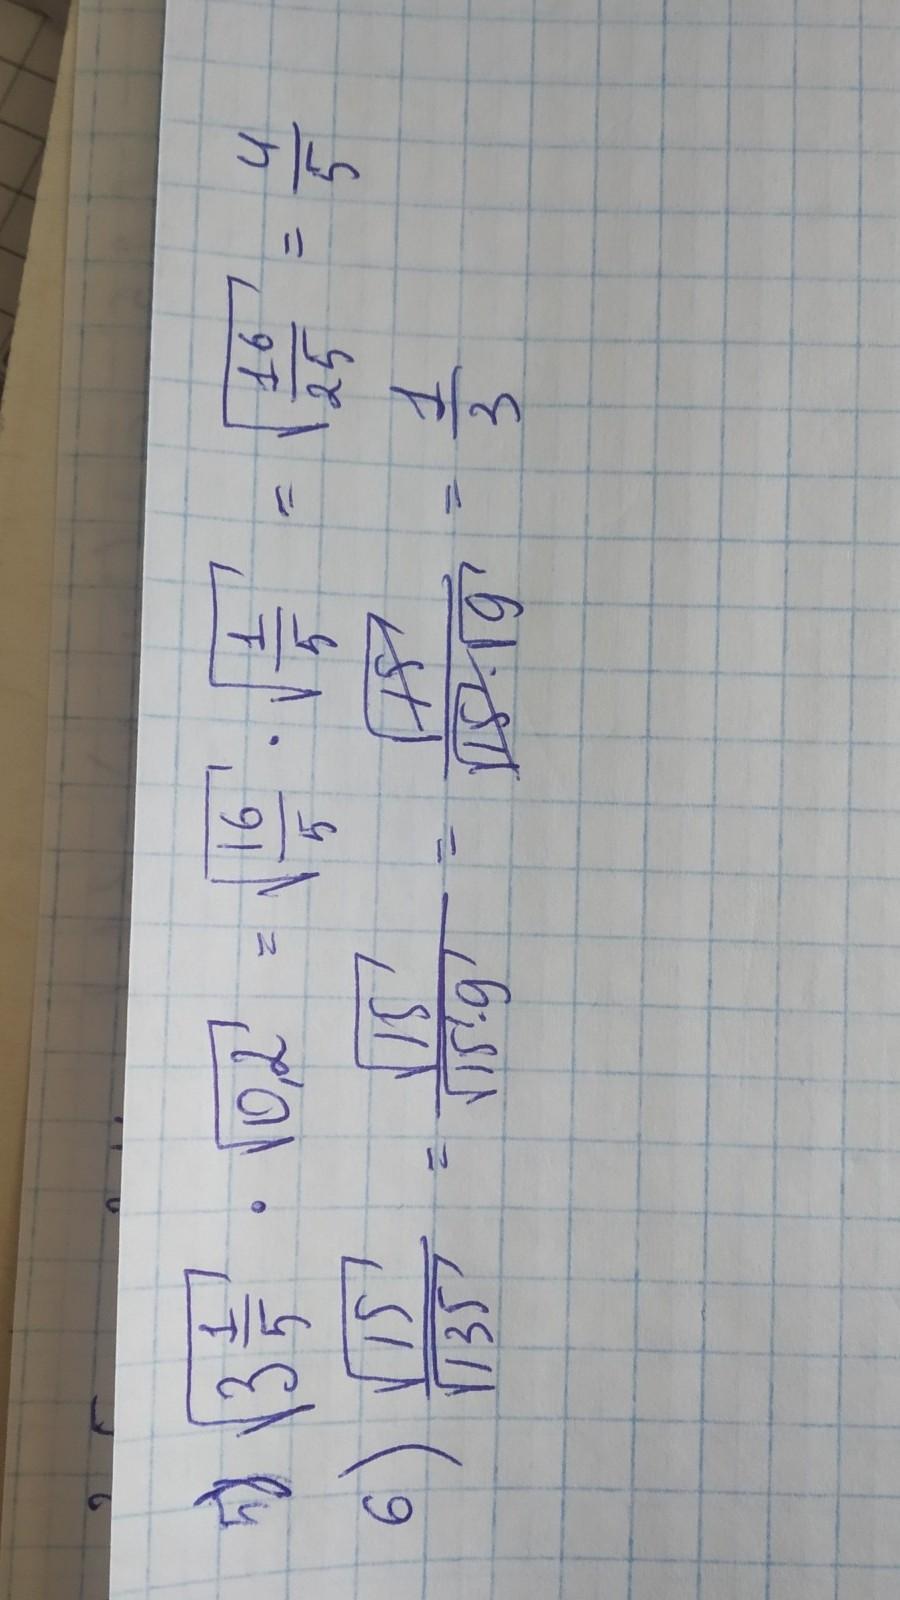 5) √(3 1/5) · √0,2 = √(16/5) · √(1/5) = √(16/25) = 4/5
6) √15/√135 = √15/√(15·9) = √15/(√15·√9) = 1/3